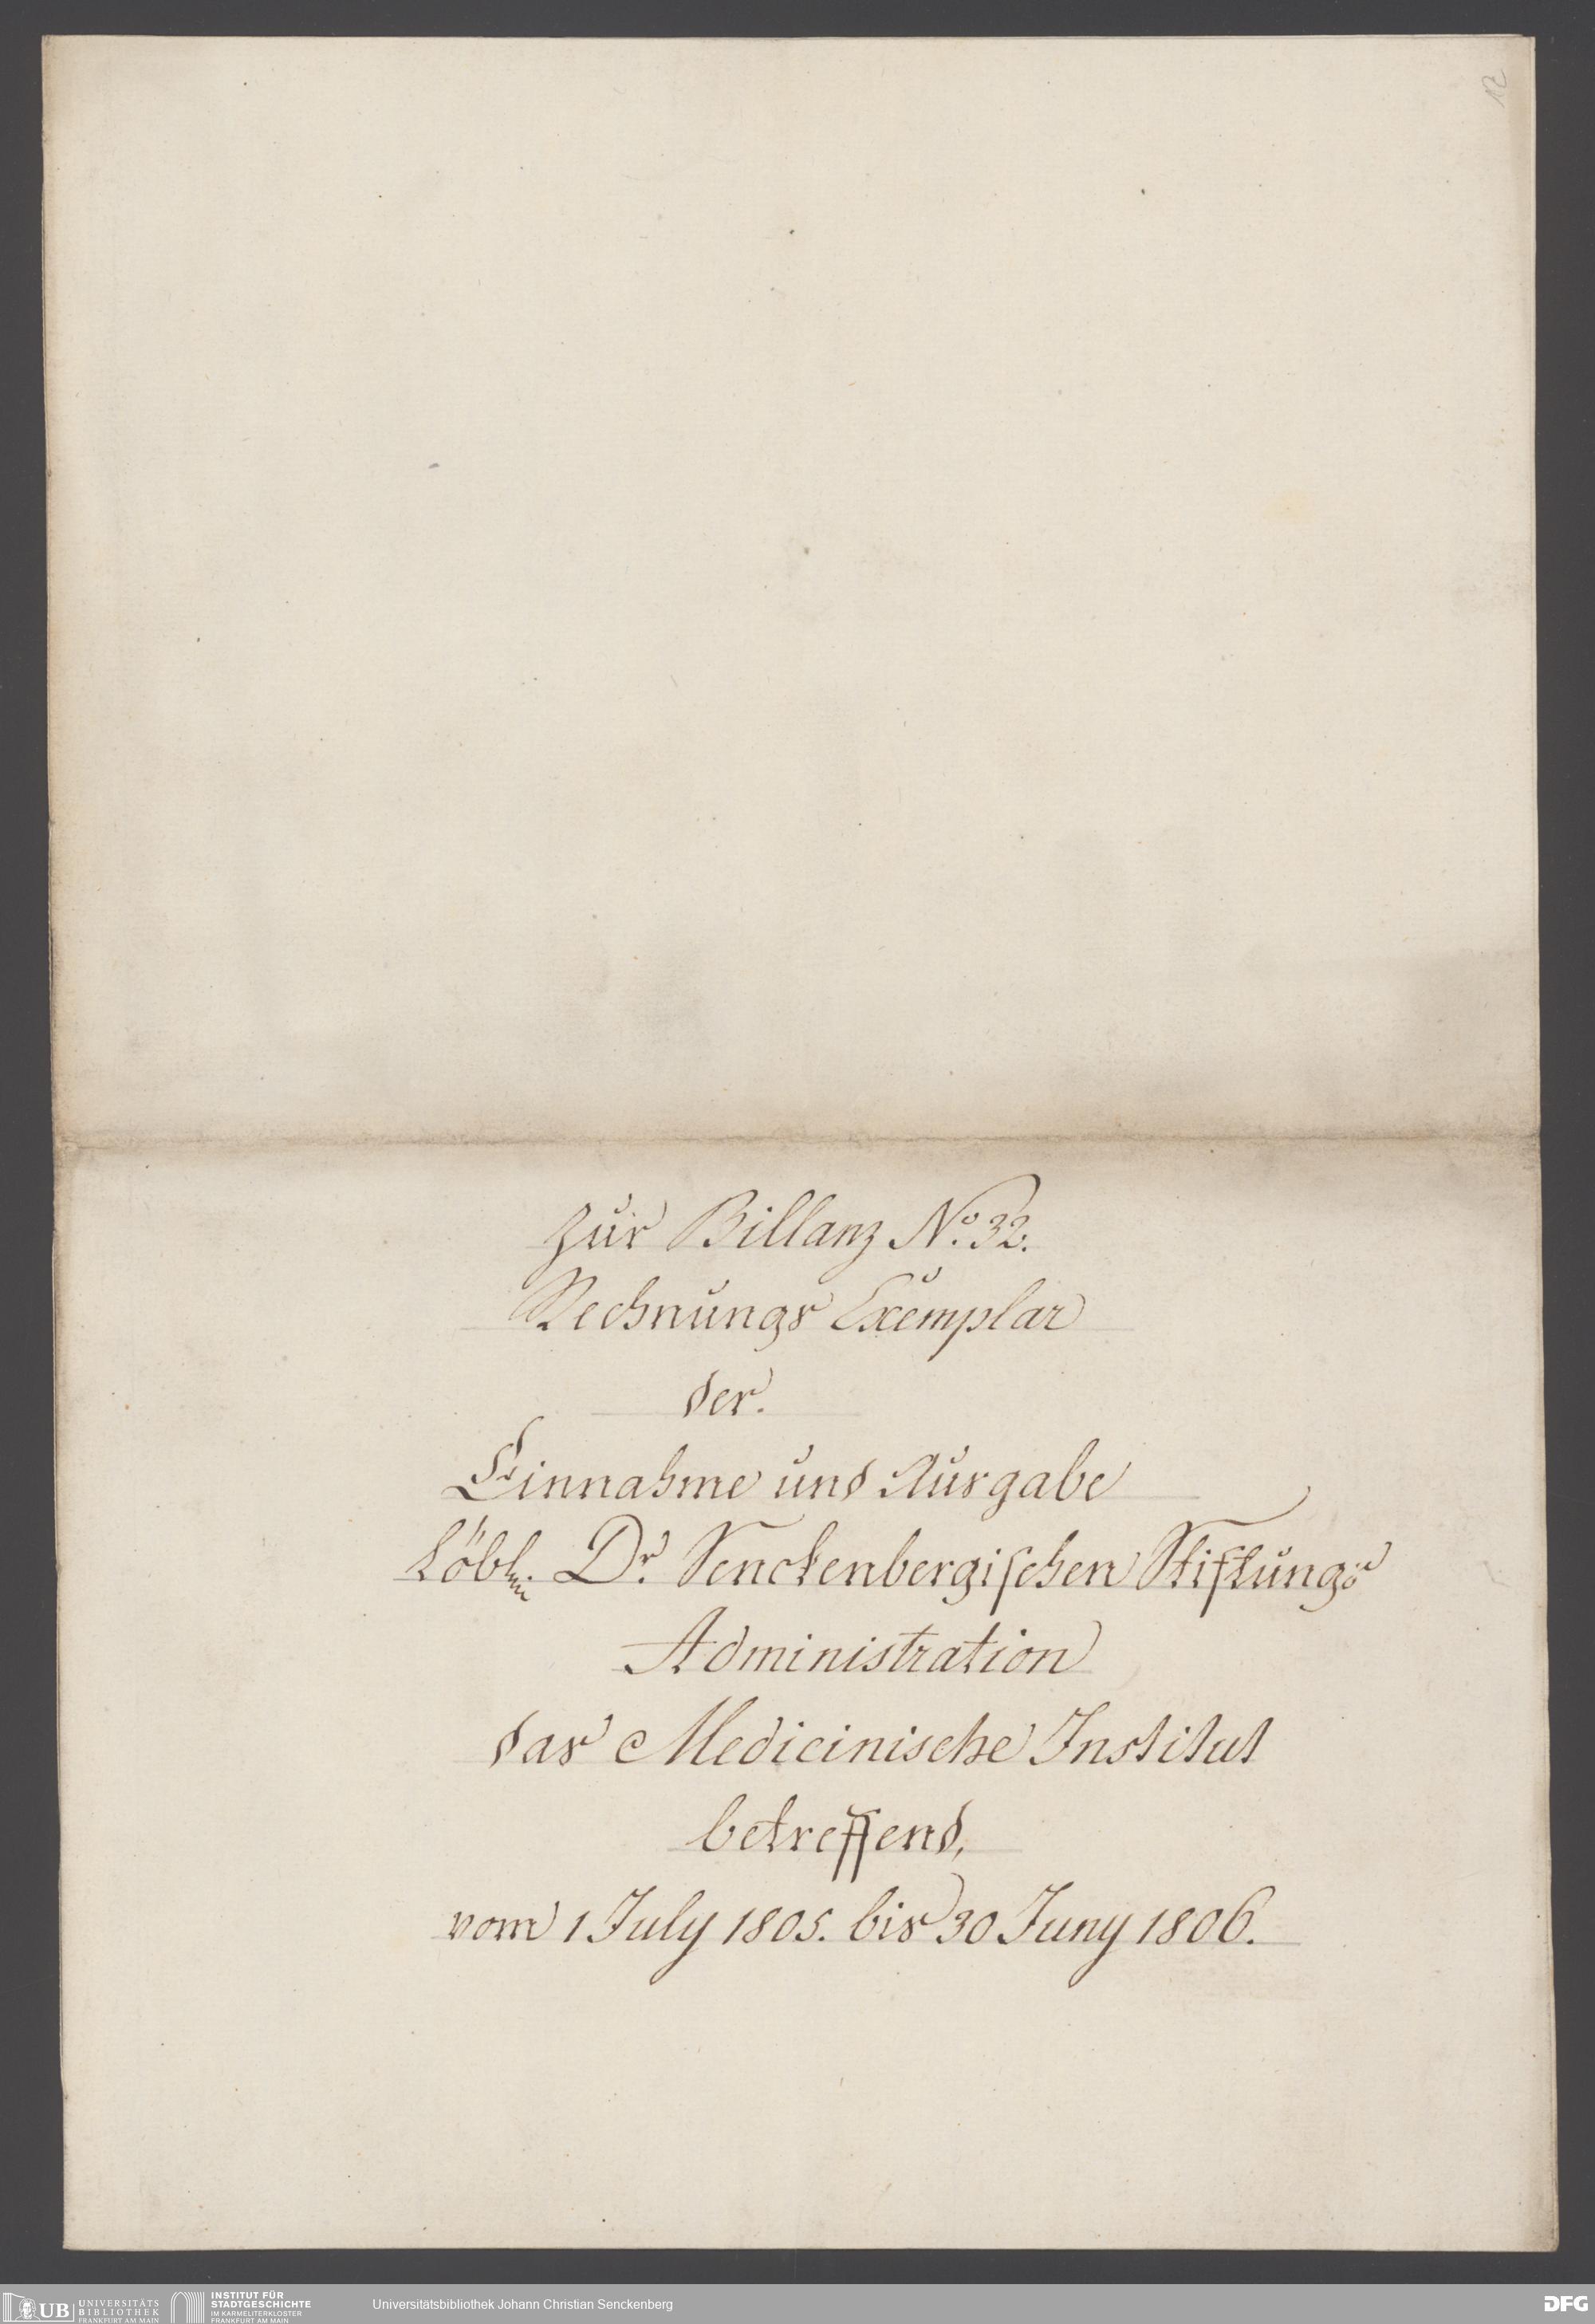 12
Zur Billanz No. 32.
Rechnungs Exemplar
der.
Einnahme und Ausgabe
Löbln. Dr. Senckenbergischen Stiftungs
Administration
das Medicinische Institut
betreffend,
vom 1 July 1805. bis 30 Juny 1806.
UB UNIVERSITÄTS
BIBLIOTHEK
FRANKFURT AM MAIN
INSTITUT FÜR
STADTGESCHICHTE
IM KARMELITERKLOSTER
FRANKFURT AM MAIN
Universitätsbibliothek Johann Christian Senckenberg
DFG